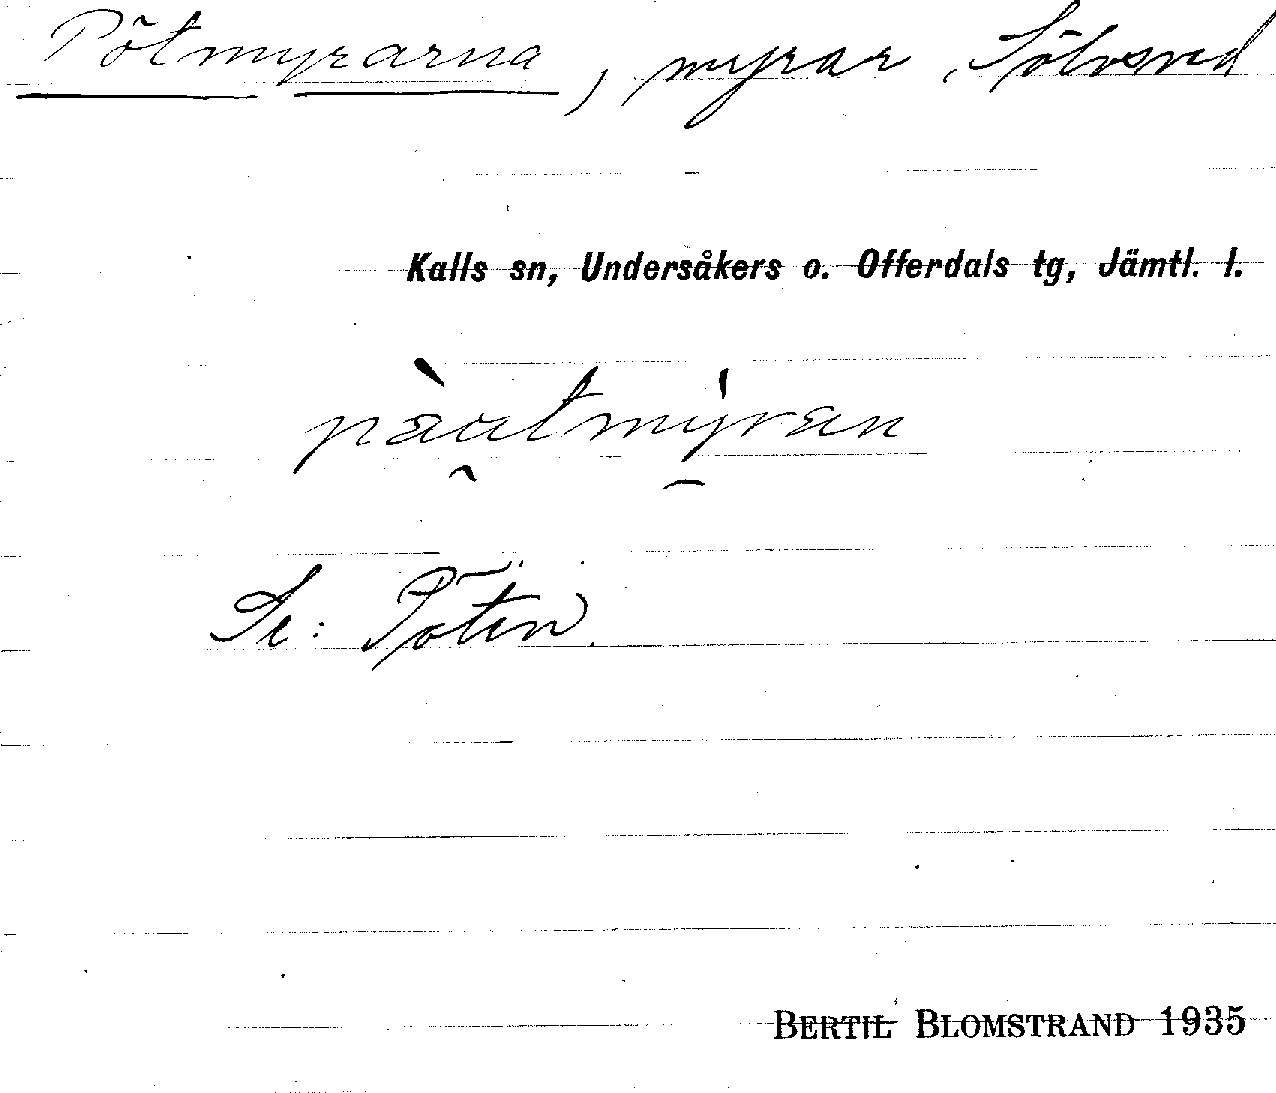 Pötmyrarna, myrar, Sölvsved
Kalls sn, Undersåkers o. Offerdals tg, Jämtl. l.
Se: Pöten.
BERTIL BLOMSTRAND 1935